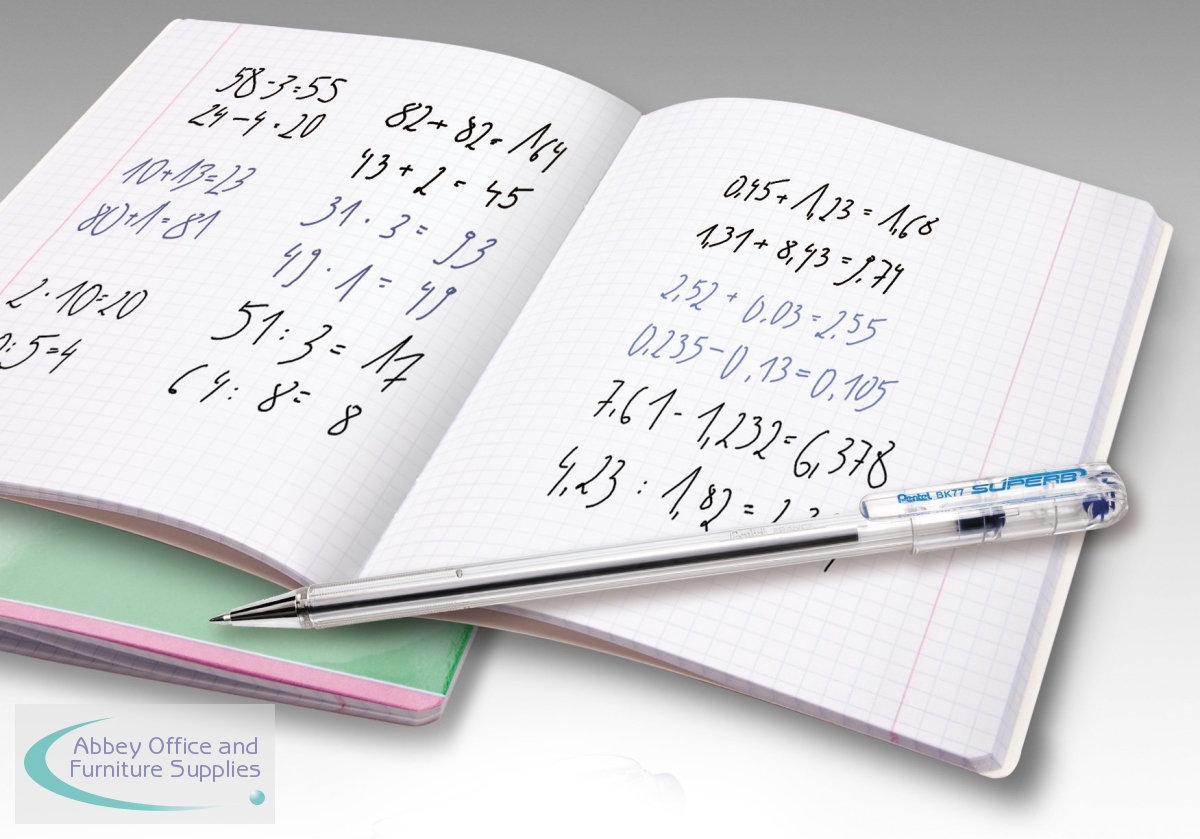 58-3=55
24-4=20
10+13=23
80+1=81
2·10=20
:5=4
82+82=164
43+2=45
31·3=93
49·1=49
51:3=17
64:8=8
0,45+1,23=1,68
1,31+8,43=9,74
2,52+0,03=2,55
0,235-0,13=0,105
7,61-1,232=6,378
4,23:1,82=2,3
Pentel BK77 SUPERB
Abbey Office and
Furniture Supplies